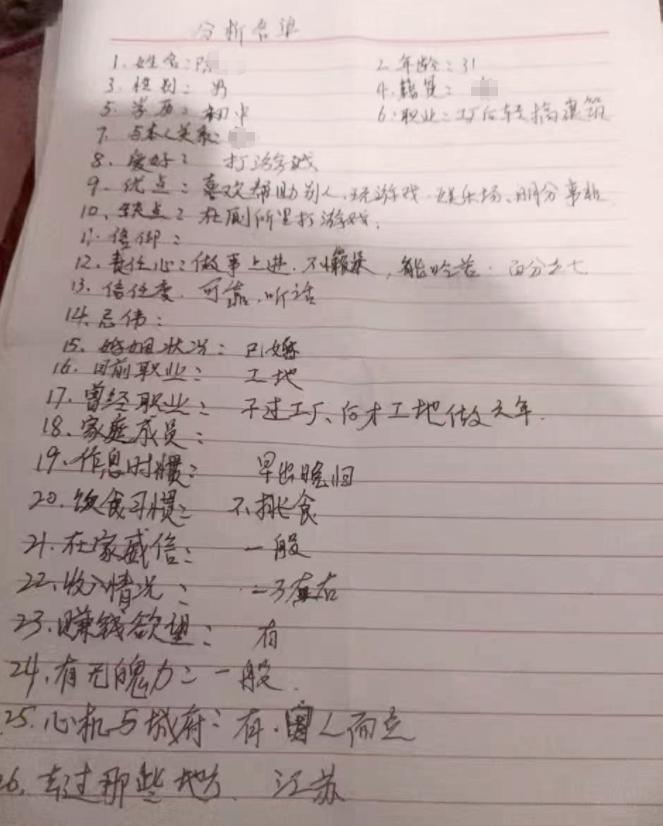 分析名单
1. 姓名: 2. 年龄: 31
3. 性别: 男 4. 籍贯:
5. 学历: 初中 6. 职业: 工厂后转搞建筑
7. 与本人关系:
8. 爱好: 打游戏
9. 优点: 喜欢帮助别人、玩游戏、娱乐场、明分事非
10. 缺点: 在厕所里打游戏.
11. 信仰:
12. 责任心: 做事上进. 不懒惰, 能吃苦. 百分之七
13. 信任度. 可靠. 听话
14. 忌伟:
15. 婚姻状况: 已婚
16. 目前职业: 工地
17. 曾经职业: 干过工厂、后才工地做六年.
18. 家庭成员:
19. 作息时惯: 早出晚归
20. 饮食习惯: 不挑食
21. 在家威信: 一般
22. 收入情况: 二万左右
23. 赚钱欲望: 有
24. 有无魄力: 一般.
25. 心机与城府: 有. 因人而应
26. 去过那些地方. 江苏